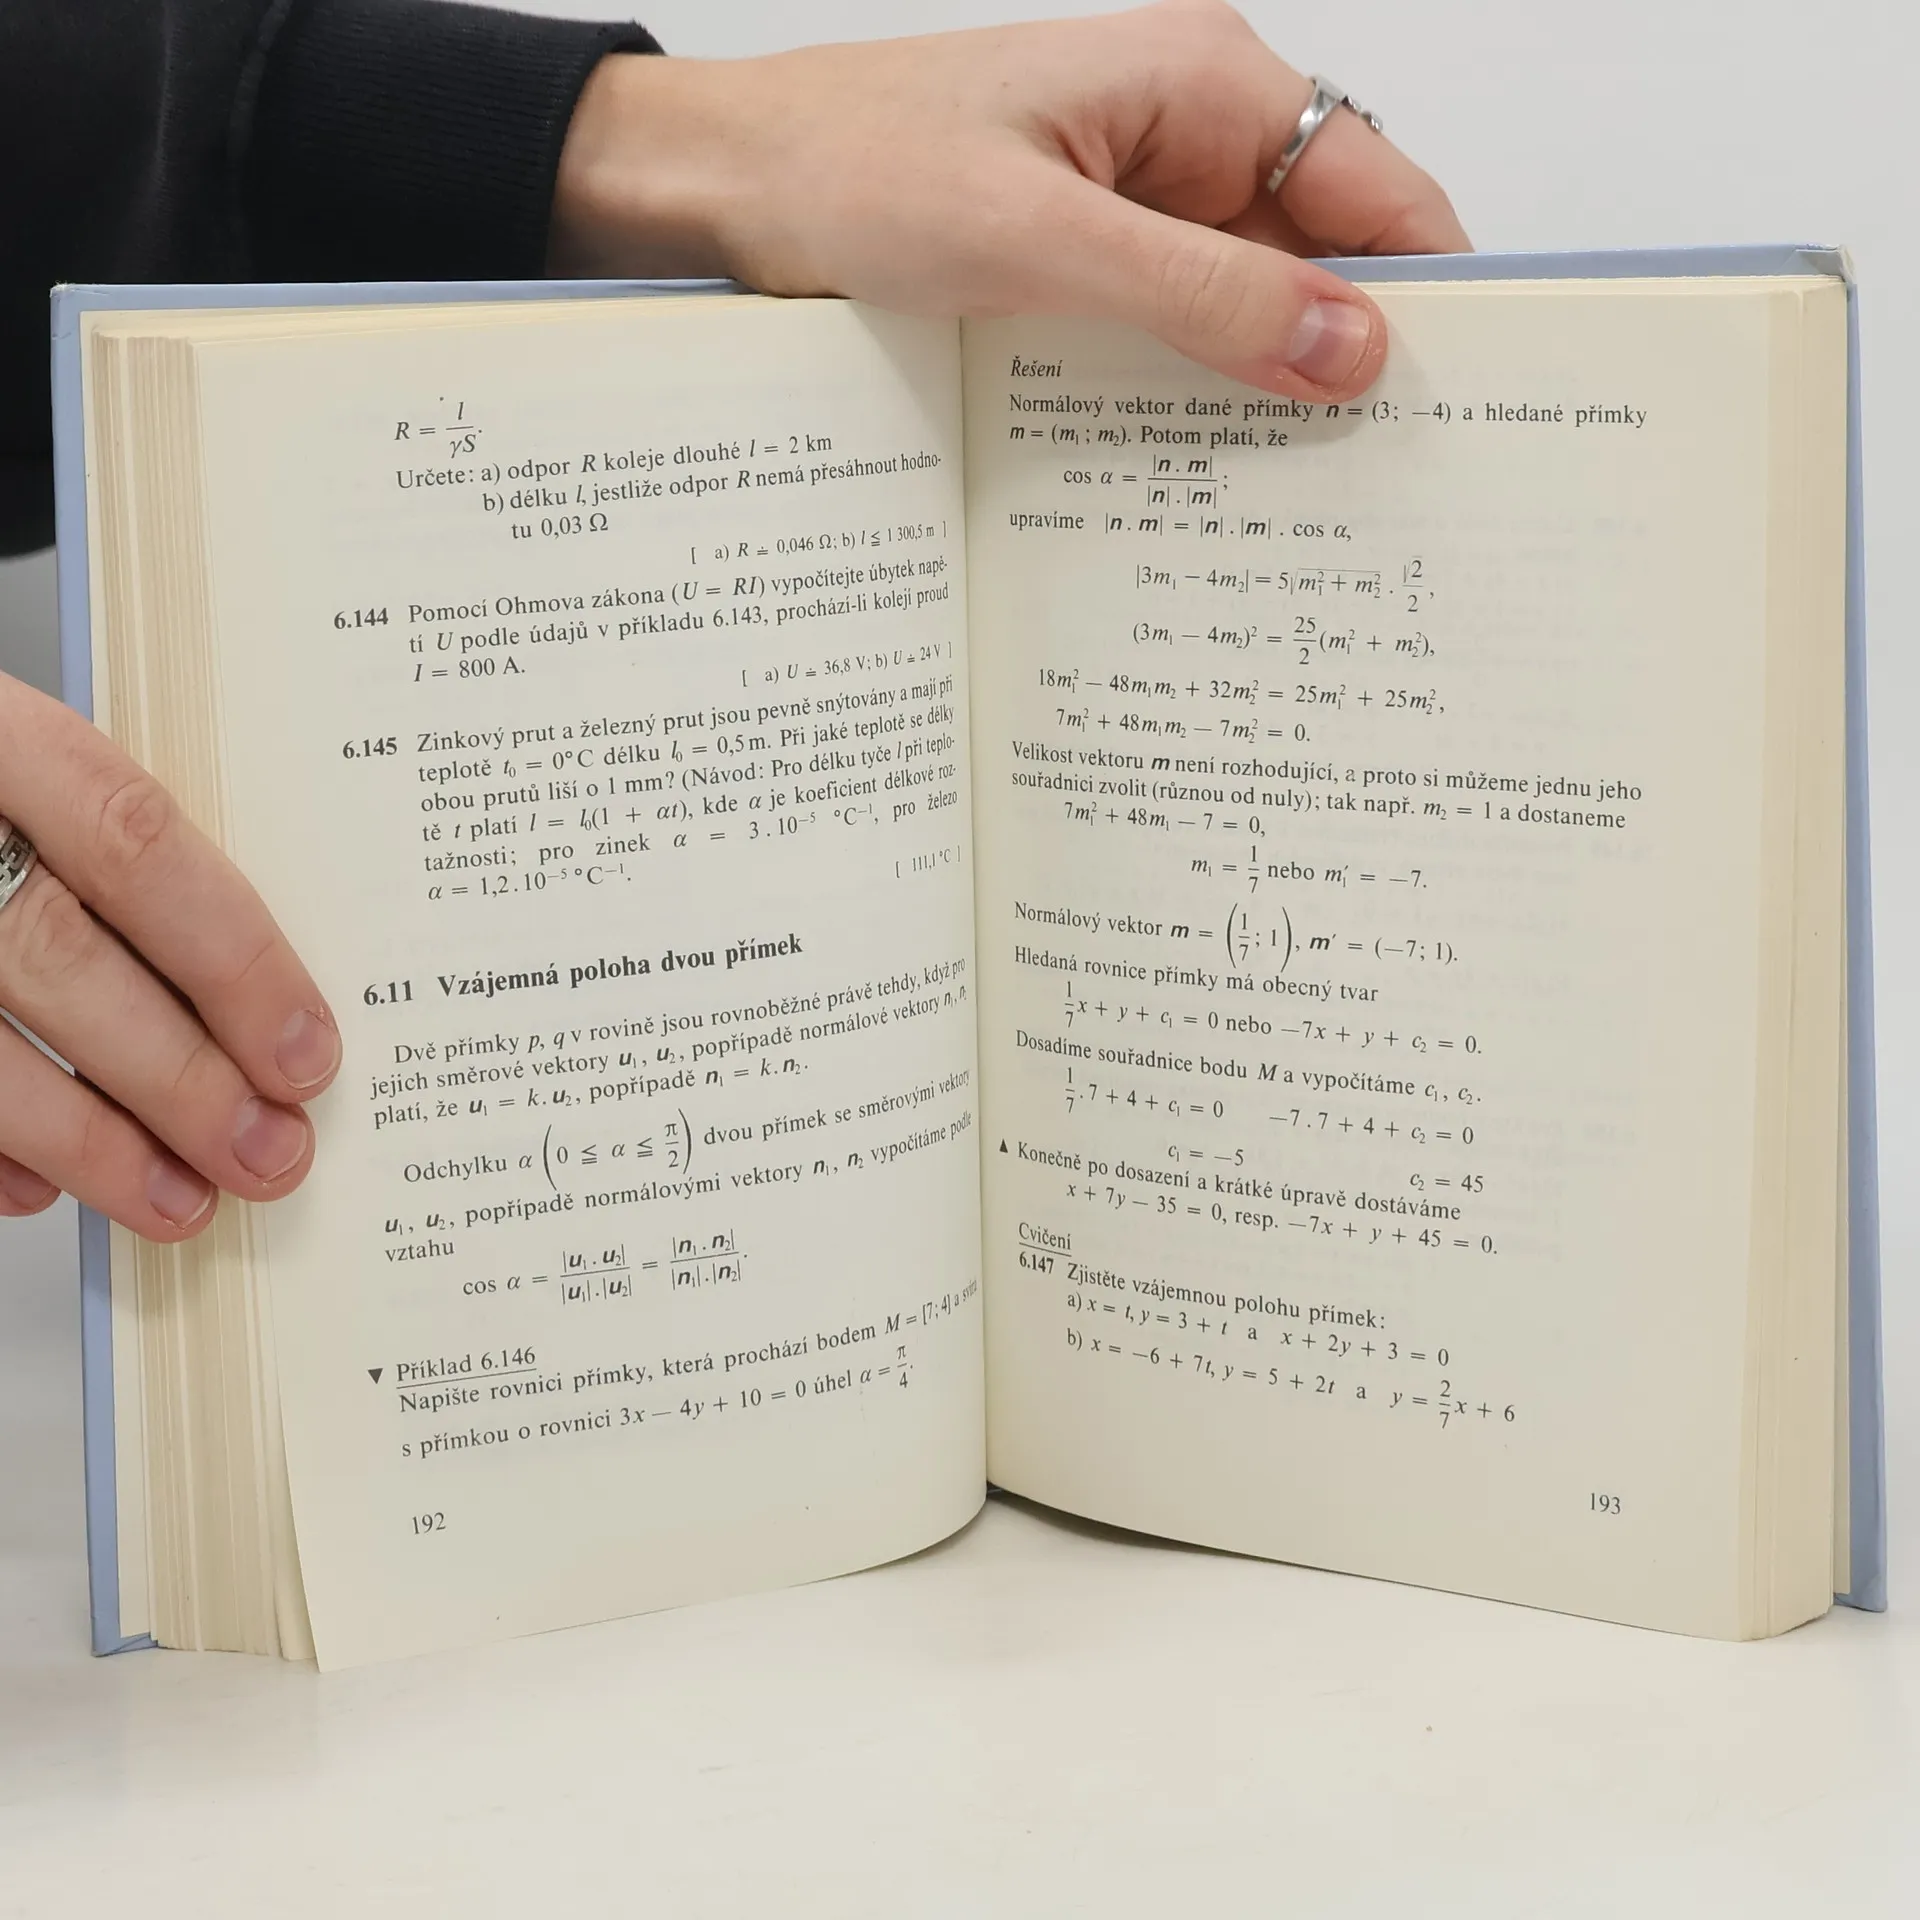 R = l/γS.
Určete: a) odpor R koleje dlouhé l = 2 km
b) délku l, jestliže odpor R nemá přesáhnout hodno-
tu 0,03 Ω
[ a) R ≐ 0,046 Ω; b) l ≦ 1 300,5 m ]
6.144 Pomocí Ohmova zákona (U = RI) vypočítejte úbytek napě-
tí U podle údajů v příkladu 6.143, prochází-li kolejí proud
I = 800 A.
[ a) U ≐ 36,8 V; b) U ≐ 24 V ]
6.145 Zinkový prut a železný prut jsou pevně snýtovány a mají při
teplotě t₀ = 0°C délku l₀ = 0,5 m. Při jaké teplotě se délky
obou prutů liší o 1 mm? (Návod: Pro délku tyče l při teplo-
tě t platí l = l₀(1 + αt), kde α je koeficient délkové roz-
tažnosti; pro zinek α = 3 . 10⁻⁵ °C⁻¹, pro železo
α = 1,2 . 10⁻⁵ °C⁻¹.
[ 111,1 °C ]
6.11 Vzájemná poloha dvou přímek
Dvě přímky p, q v rovině jsou rovnoběžné právě tehdy, když pro
jejich směrové vektory u₁, u₂, popřípadě normálové vektory n₁, n₂
platí, že u₁ = k . u₂, popřípadě n₁ = k . n₂.
Odchylku α (0 ≦ α ≦ π/2) dvou přímek se směrovými vektory
u₁, u₂, popřípadě normálovými vektory n₁, n₂ vypočítáme podle
vztahu
cos α = |u₁ . u₂|/|u₁| . |u₂| = |n₁ . n₂|/|n₁| . |n₂|.
▼ Příklad 6.146
Napište rovnici přímky, která prochází bodem M = [7; 4] a svírá
s přímkou o rovnici 3x — 4y + 10 = 0 úhel α = π/4.
192
Řešení
Normálový vektor dané přímky n = (3; —4) a hledané přímky
m = (m₁ ; m₂). Potom platí, že
cos α = |n . m|/|n| . |m|;
upravíme |n . m| = |n| . |m| . cos α,
|3m₁ — 4m₂| = 5√(m₁² + m₂²) . √2/2,
(3m₁ — 4m₂)² = 25/2 (m₁² + m₂²),
18m₁² — 48m₁m₂ + 32m₂² = 25m₁² + 25m₂²,
7m₁² + 48m₁m₂ — 7m₂² = 0.
Velikost vektoru m není rozhodující, a proto si můžeme jednu jeho
souřadnici zvolit (různou od nuly); tak např. m₂ = 1 a dostaneme
7m₁² + 48m₁ — 7 = 0,
m₁ = 1/7 nebo m₁′ = —7.
Normálový vektor m = (1/7; 1), m′ = (—7; 1).
Hledaná rovnice přímky má obecný tvar
1/7 x + y + c₁ = 0 nebo —7x + y + c₂ = 0.
Dosadíme souřadnice bodu M a vypočítáme c₁, c₂.
1/7 . 7 + 4 + c₁ = 0 —7 . 7 + 4 + c₂ = 0
c₁ = —5 c₂ = 45
▲ Konečně po dosazení a krátké úpravě dostáváme
x + 7y — 35 = 0, resp. —7x + y + 45 = 0.
Cvičení
6.147 Zjistěte vzájemnou polohu přímek:
a) x = t, y = 3 + t a x + 2y + 3 = 0
b) x = —6 + 7t, y = 5 + 2t a y = 2/7 x + 6
193